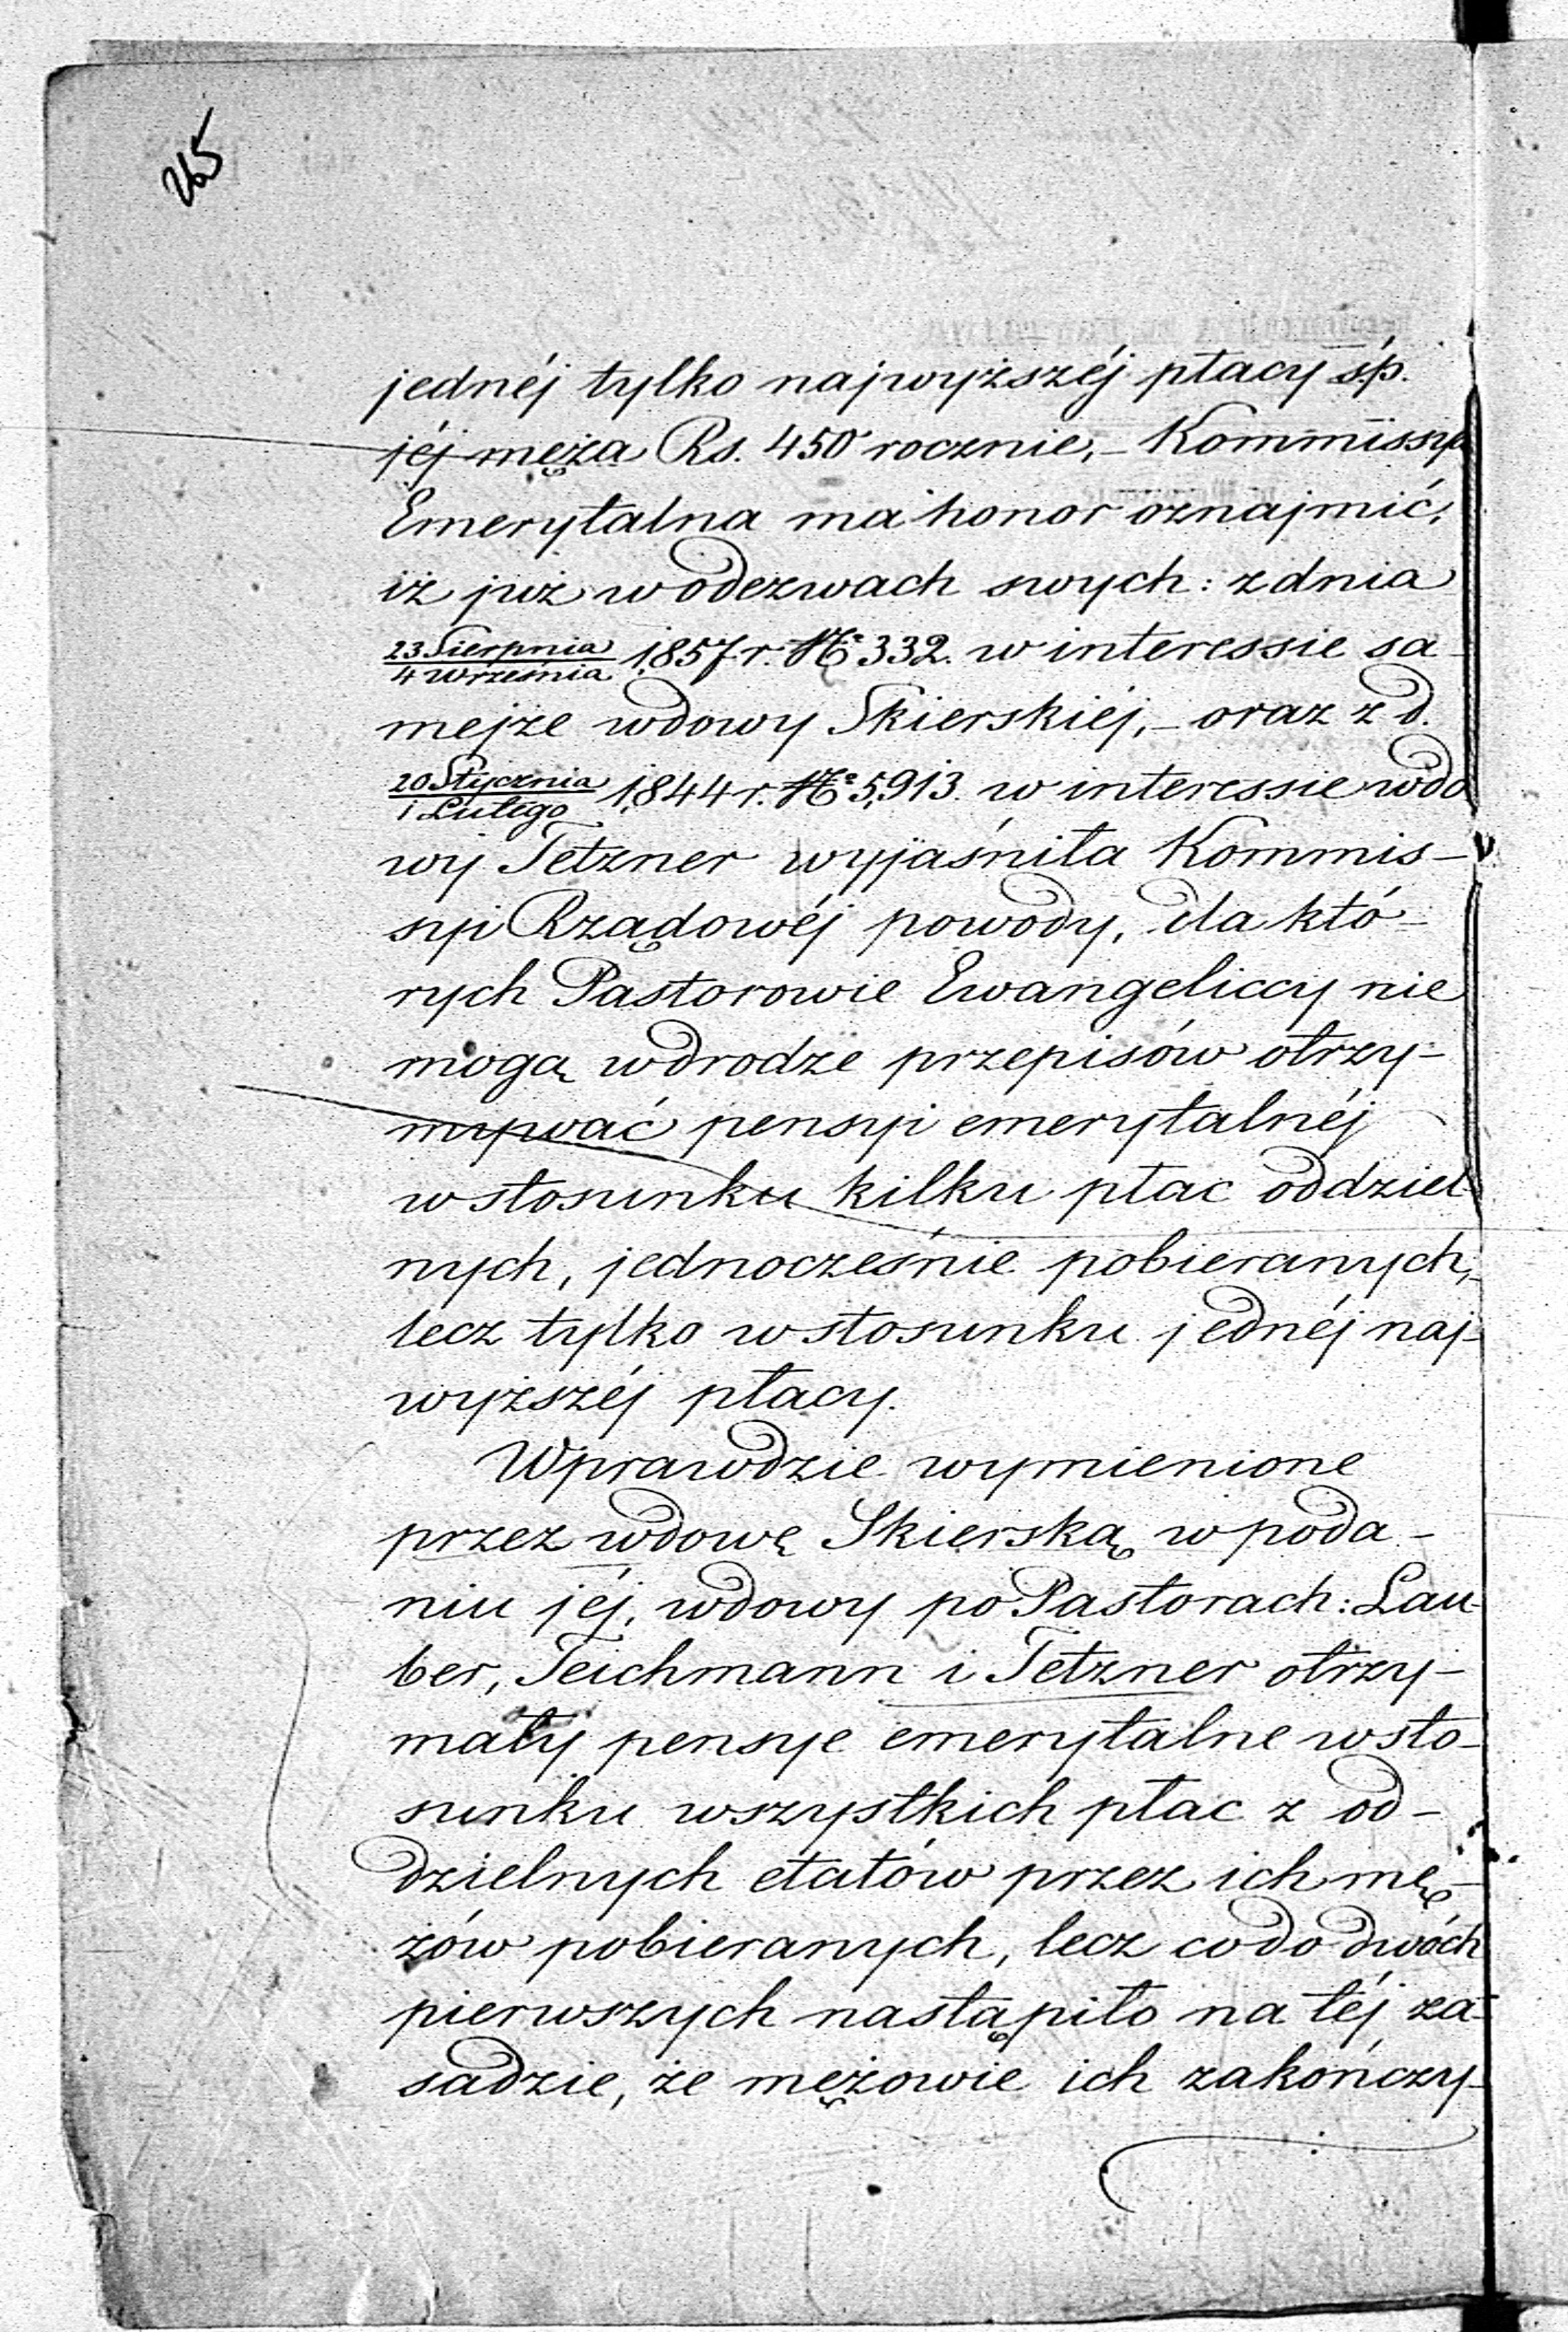 265
jednéj tylko najwyższéj płacy ś.p.
jéj męża Rs. 450 rocznie, – Kommissya
Emerytalna ma honor oznajmić,
iż już w odezwach swych: z dnia
23 Sierpnia / 4 Września 1857 r. № 332. w interessie sa-
mejże wdowy Skierskiéj, – oraz z d.
20 Stycznia / 1 Lutego 1844 r. № 5,913. w interessie wdo
wy Tetzner wyjaśniła Kommis-
syi Rządowéj powody, dla któ-
rych Pastorowie Ewangeliccy nie
mogą w drodze przepisów otrzy-
mywać pensyi emerytalnéj
w stosunku kilku płac oddziel-
nych, jednocześnie pobieranych,
lecz tylko w stosunku jednéj naj-
wyższéj płacy.
Wprawdzie wymienione
przez wdowę Skierską w poda-
niu jéj, wdowy po Pastorach: Lau-
ber, Teichmann i Tetzner otrzy-
mały pensye emerytalne w sto-
sunku wszystkich płac z od-
dzielnych etatów przez ich mę-
żów pobieranych, lecz co do dwóch
pierwszych nastąpiło na téj za-
sadzie, że mężowie ich zakończy-